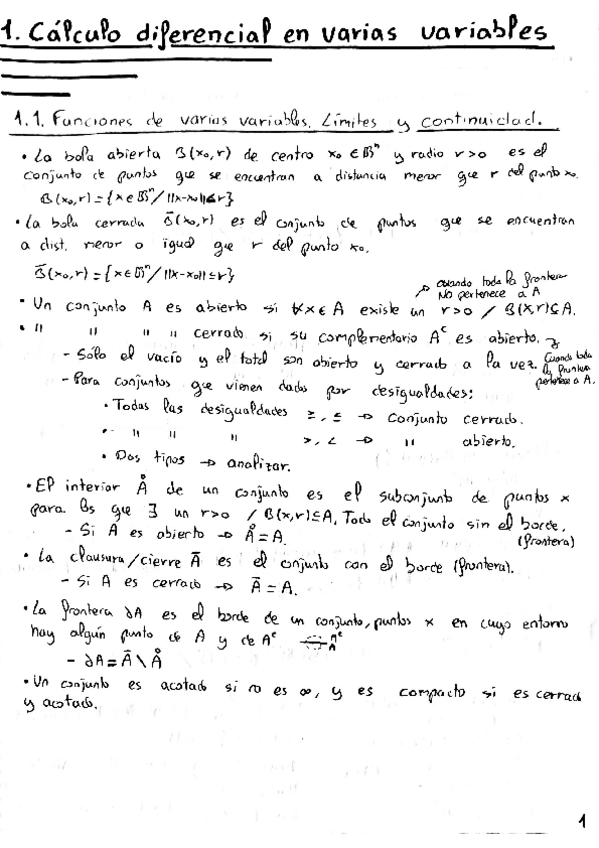 1. Cálculo diferencial en varias variables
1.1. Funciones de varias variables. Límites y continuidad.
• La bola abierta B(x₀,r) de centro x₀ ∈ ℝⁿ y radio r>0 es el
conjunto de puntos que se encuentran a distancia menor que r del punto x₀.
B(x₀,r)={x∈ℝⁿ/||x-x₀||≤r}
• La bola cerrada B̄(x₀,r) es el conjunto de puntos que se encuentran
a dist. menor o igual que r del punto x₀.
B̄(x₀,r)={x∈ℝⁿ/||x-x₀||≤r}
cuando toda la frontera
NO pertenece a A
• Un conjunto A es abierto si ∀x∈A existe un r>0 / B(x,r)⊆A.
• " " " " cerrado si su complementario Aᶜ es abierto.
cuando toda
la frontera
pertenece a A.
- Sólo el vacío y el total son abierto y cerrado a la vez.
- Para conjuntos que vienen dados por desigualdades:
• Todas las desigualdades ≥, ≤ → Conjunto cerrado.
• " " " >, < → " abierto.
• Dos tipos → analizar.
• El interior Å de un conjunto es el subconjunto de puntos x
para los que ∃ un r>0 / B(x,r)⊆A. Todo el conjunto sin el borde.
(frontera)
- Si A es abierto → Å=A.
• La clausura/cierre Ā es el conjunto con el borde (frontera).
- Si A es cerrado → Ā=A.
• La frontera ∂A es el borde de un conjunto, puntos x en cuyo entorno
hay algún punto de A y de Aᶜ Aᶜ A
- ∂A=Ā\Å
• Un conjunto es acotado si no es ∞, y es compacto si es cerrado
y acotado.
1